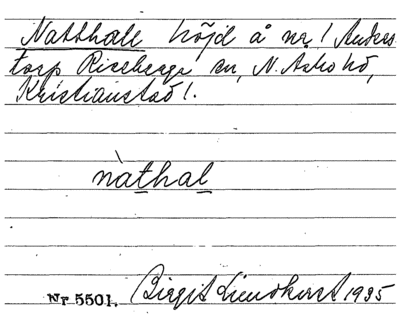 Natthall höjd å nr 1 Anders-
torp Riseberga sn, N. Åsbo hd,
Kristianstad l.
nàthal
Nr 5501. Birgit 1935